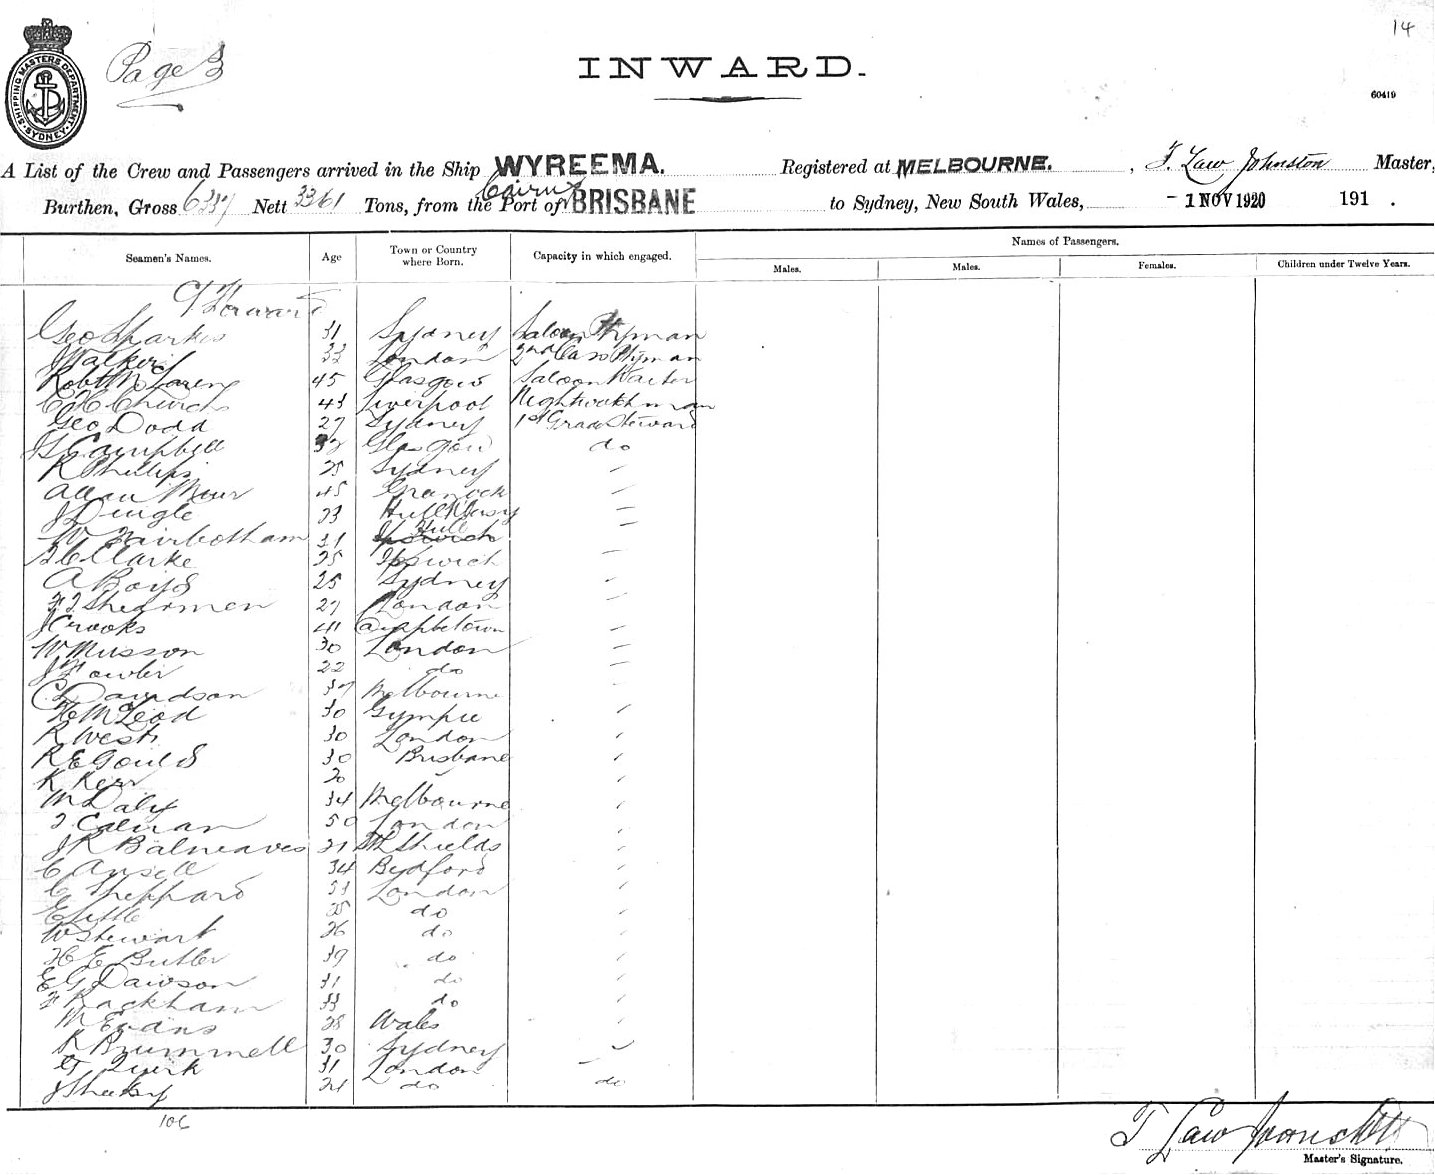 14
Page 3
SHIPPING MASTERS DEPARTMENT SYDNEY
INWARD.
60419
A List of the Crew and Passengers arrived in the Ship WYREEMA. Registered at MELBOURNE. , T. Law Johnston Master,
Burthen, Gross 6337 Nett 3361 Tons, from the Port of Cairns BRISBANE to Sydney, New South Wales, - 1 NOV 1920 191 .
Seamen's Names. Age Town or Country where Born. Capacity in which engaged. Names of Passengers.
Males. Males. Females. Children under Twelve Years.
Geo Sparkes 31 Sydney Saloon Ptyman
J Walker 33 London 2nd Class Ptyman
Robt McLaren 45 Glasgow Saloon Waiter
C H Church 43 Liverpool Nightwatchman
Geo Dodd 27 Sydney 1st Grade Steward
Campbell Glasgow do
R Phillips 25 Sydney "
Allan Muir 45 Greenock "
J Dingle 33 Hull "
W Fairbotham 31 Ipswich Hull "
Clarke 35 Ipswich "
A Boyd 25 Sydney "
Shearmen 27 London "
J Crooks 41 Campbeltown "
W Musson 30 London "
J Fowler 22 do "
C Davidson 37 Melbourne "
McLeod 30 Gympie "
R West 30 London "
R E Gould 30 Brisbane "
K Kerr 20 "
M Daly 34 Melbourne "
50 London "
J R Balneaves 21 Sth Shields "
C Ansell 34 Bedford "
C Sheppard 33 London "
E Little 25 do "
W Stewart 26 do "
H E Butler 39 do "
E G Dawson 31 do "
F Rackham 33 do "
W Evans 28 Wales "
R Brummell 30 Sydney "
G Quirk 31 London "
J Sheehy 21 do do
106
T Law Johnston
Master's Signature.